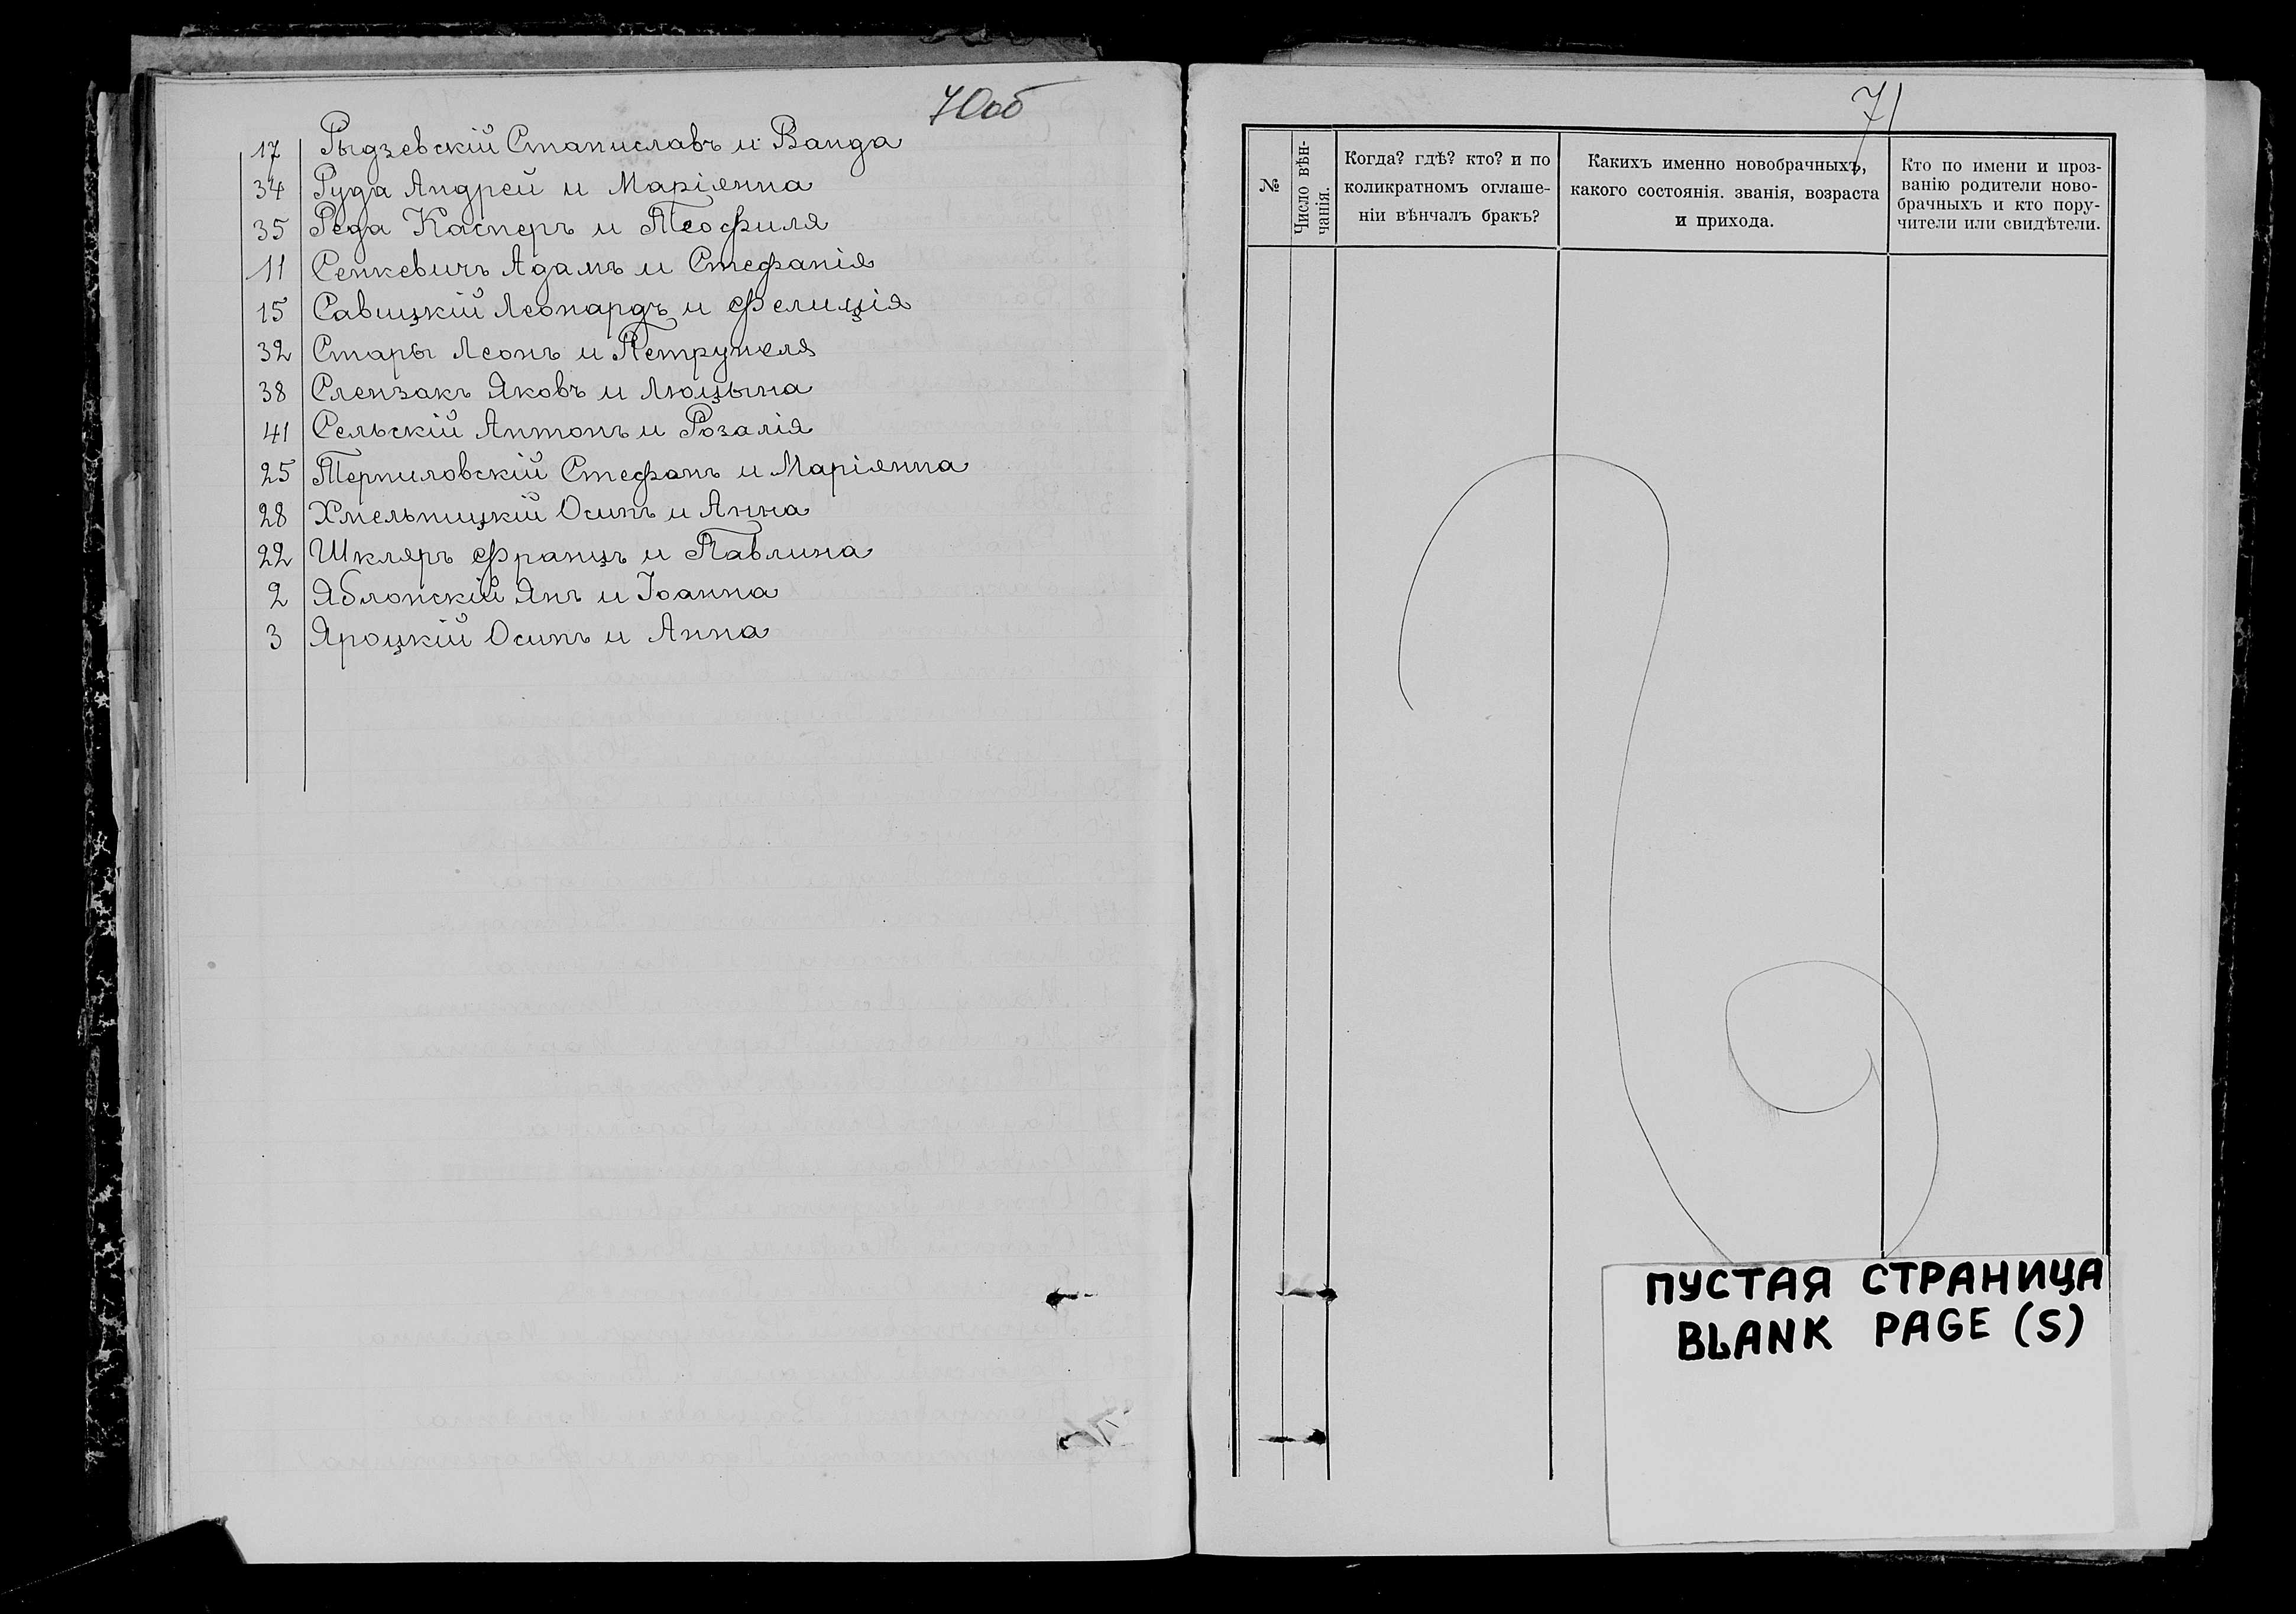 70об
17 Рыдзевскій Станиславъ и Ванда
34 Руда Андрей и Маріянна
35 Реда Касперъ и Теофиля
11 Сенкевичъ Адамъ и Стефанія
15 Савицкій Леонардъ и Фелиція
32 Стары Леонъ и Петрунеля
38 Слензакъ Яковъ и Люцына
41 Сельскій Антонъ и Розалія
25 Терпиловскій Стефанъ и Маріянна
28 Хмельницкій Осипъ и Анна
22 Шкляръ Францъ и Павлина
2 Яблонскій Янъ и Іоанна
3 Яроцкій Осипъ и Анна
71
№
Число вѣн-
чанія.
Когда? гдѣ? кто? и по
коликратномъ оглаше-
ніи вѣнчалъ бракъ?
Какихъ именно новобрачныхъ,
какого состоянія. званія, возраста
и прихода.
Кто по имени и проз-
ванію родители ново-
брачныхъ и кто пору-
чители или свидѣтели.
ПУСТАЯ СТРАНИЦА
BLANK PAGE (S)